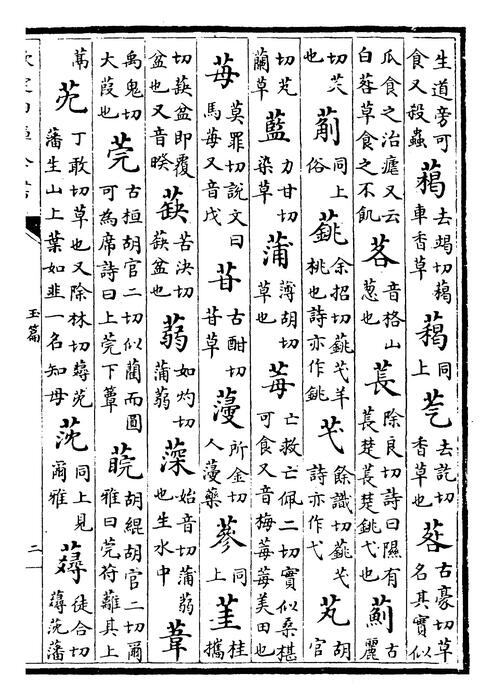 生道旁可
食又殺蟲
藒
去竭切藒
車香草
藒
同
上
芞
去訖切
香草也
䓘
古豪切草
名其實似
瓜食之治瘧又云
白䓘草食之不飢
茖
音格山
葱也
萇
除良切詩曰隰有
萇楚萇楚銚弋也
薊
古
麗
切芺
也
葪
同上
俗
余招切弋羊
桃也詩亦作銚
芅
餘識切芅
詩亦作弋
芄
胡
官
切芄
蘭草
藍
力甘切
染草
蒲
薄胡切
草也
莓
亡救亡佩二切實似桑椹
可食又音梅莓莓美田也
苺
莫罪切說文曰
馬苺又音戊
苷
古酣切
苷草
蓡
所金切
人蓡藥
蔘
同
上
茥
桂
攜
切蒛盆即覆
盆也又音暌
蒛
苦決切
蒛盆也
蒻
如灼切
蒲蒻
始音切蒲蒻
也生水中
葦
禹鬼切
大葭也
莞
古桓胡官二切似藺而圓
可為席詩曰上莞下簟
胡緄胡官二切爾
雅曰莞苻蘺其上
蒚
丁敢切草也又除林切蕁
藩生山上葉如韭一名知母
莐
同上見
爾雅
蕁
徒合切
蕁藩
玉篇
二